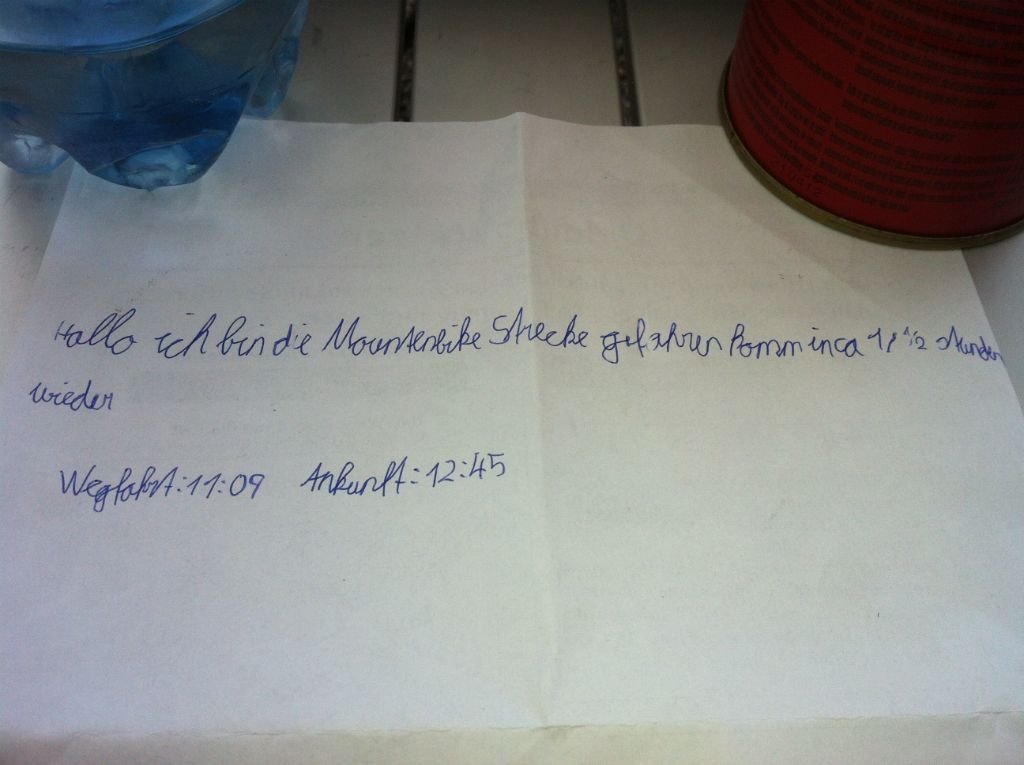 Hallo ich bin die Mountenbike Strecke gefahren komm in ca 1, 1/2 stunden
wieder
Wegfahrt: 11:09 Ankunft: 12:45